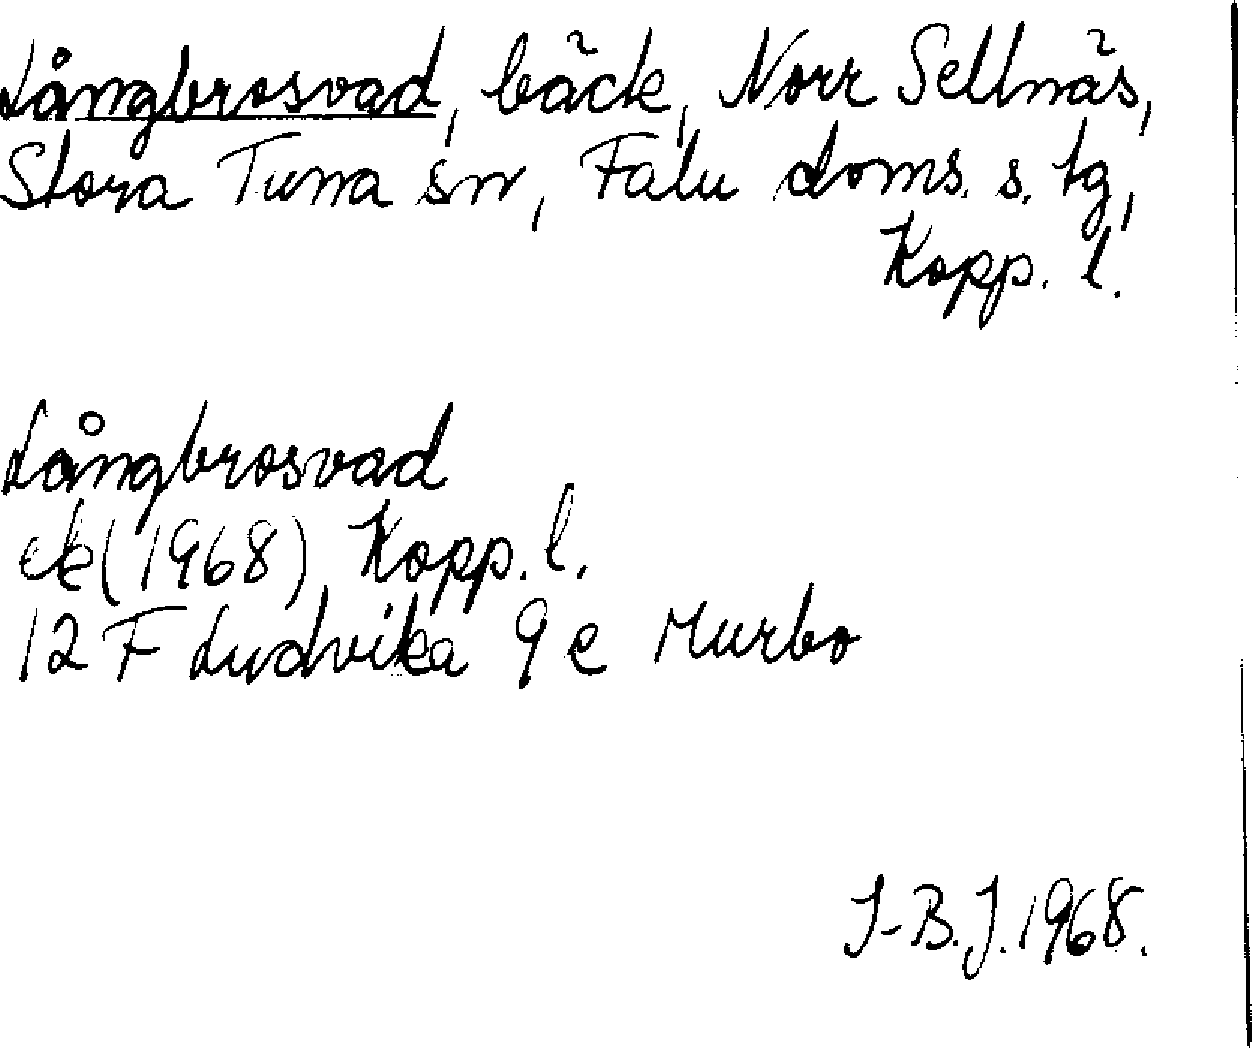 Långbrosvad, bäck, Norr Sellnäs,
Stora Tuna sn, Falu doms. s. tg,
Kopp. l.
Långbrosvad
ek (1968) Kopp. l.
12 F Ludvika 9 e Murbo
J-B.J. 1968.